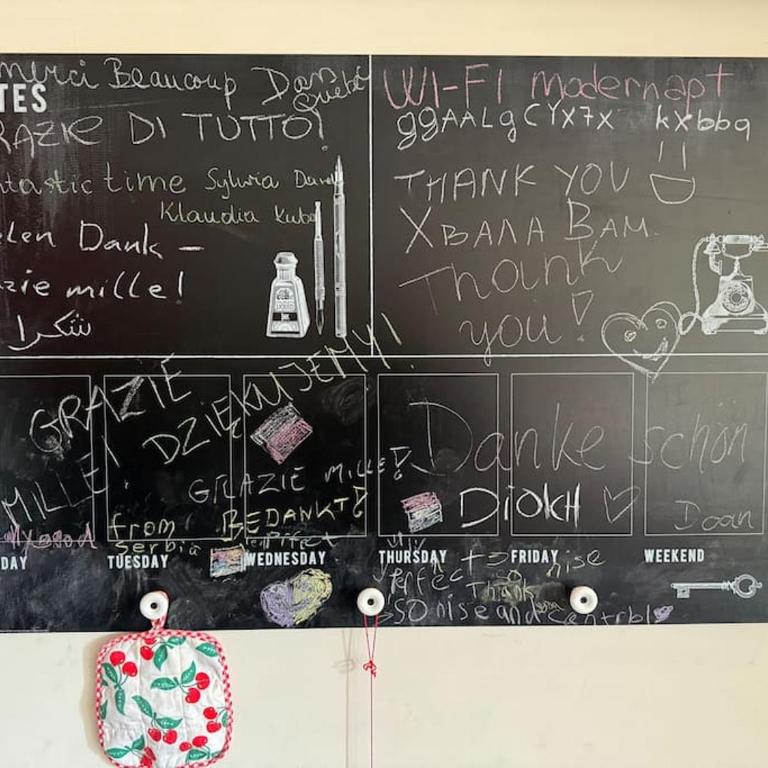 merci Beaucoup Dan
TES
GRAZIE DI TUTTO!
ntastic time Sylwia
Klaudia Kuba
elen Dank -
zie mille!
شكرا
WI-FI modernapt
ggAALgCYX7X kXbbq
THANK YOU
ХВАЛА ВАМ
Thank
you!
GRAZIE
MILLE!
DZIĘKUJEMY!
GRAZIE MILLE!
BEDANKT!
from
Serbia
Danke schön
DIOLCH
Doan
DAY
TUESDAY
WEDNESDAY
THURSDAY
FRIDAY
WEEKEND
Perfect
nise
Thank
SO nise and